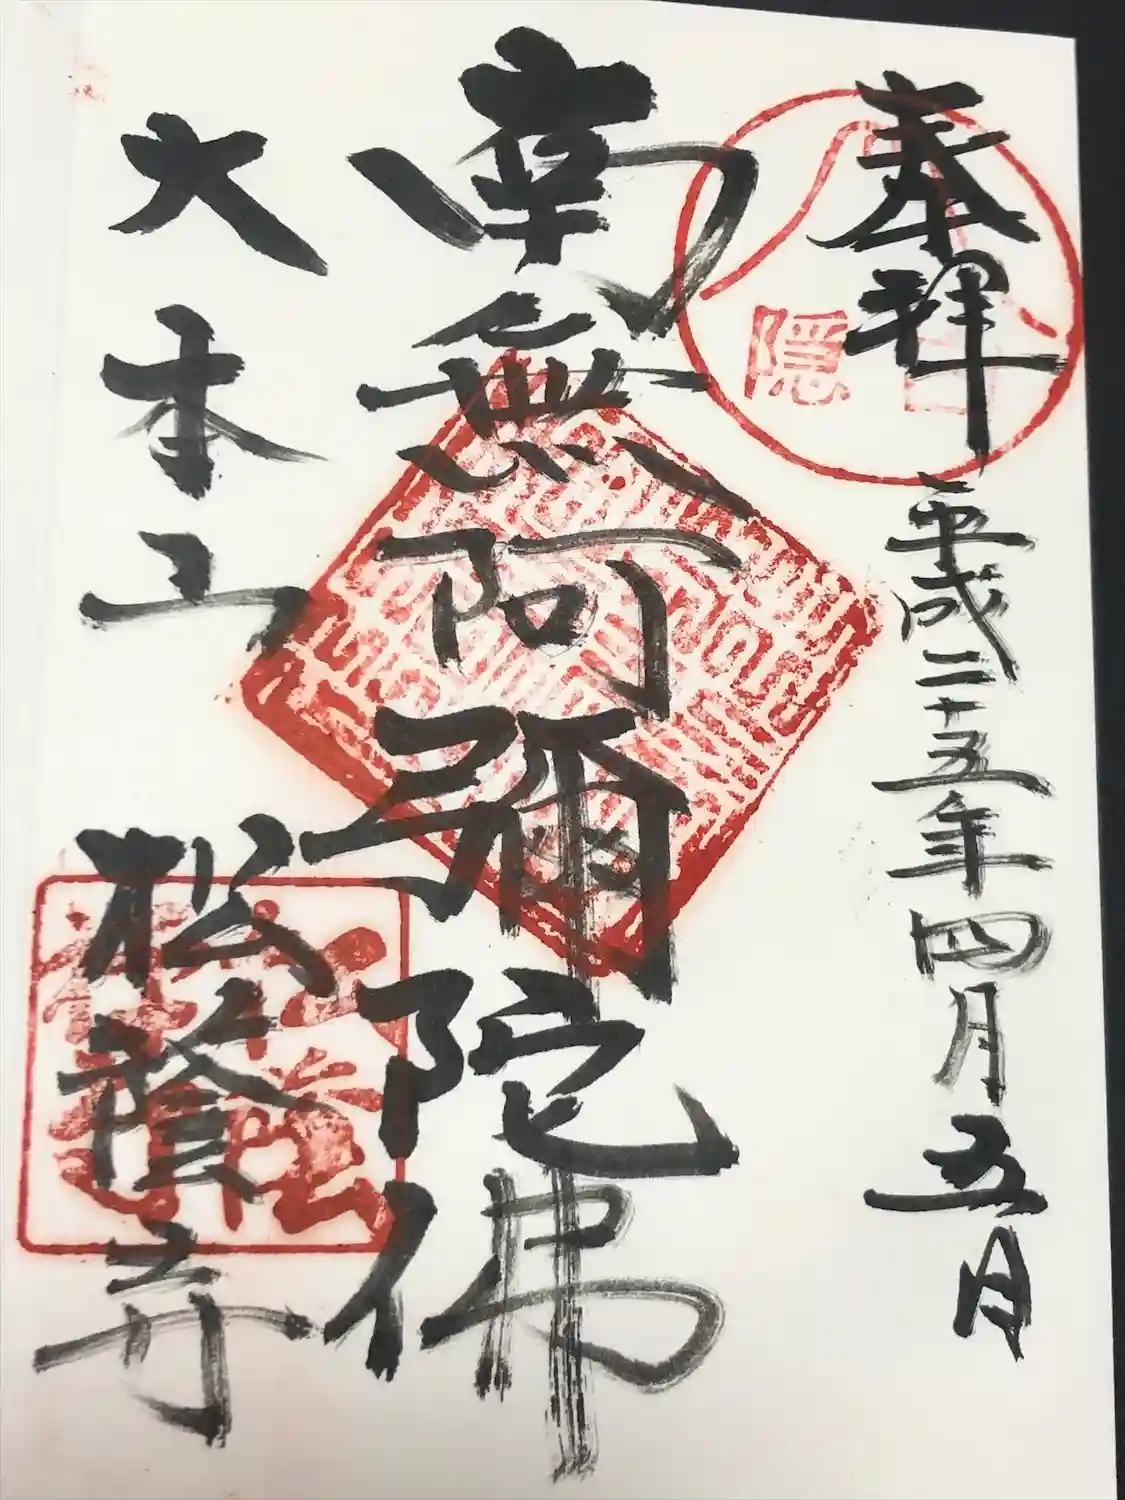 奉拝 平成二十五年四月五日
南無阿彌陀佛
大本山 松蔭寺
白隠